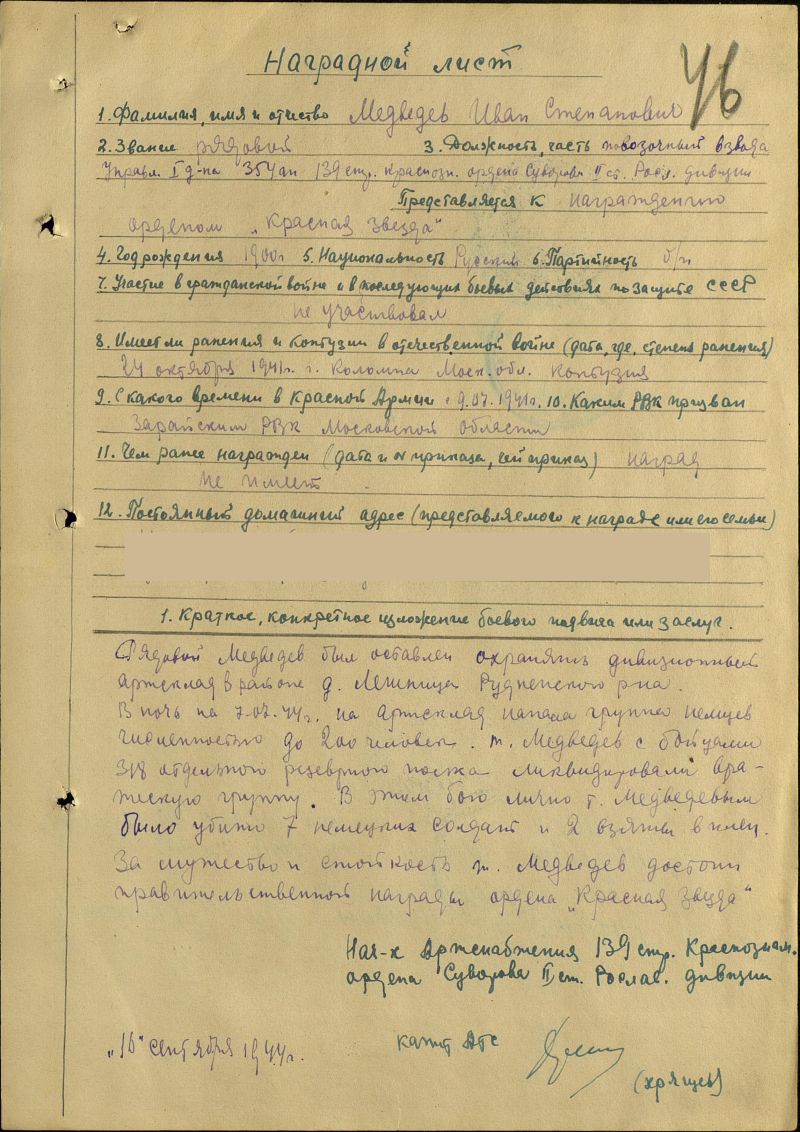 Наградной лист
46
1. Фамилия, имя и отчество Медведев Иван Степанович
2. Звание рядовой 3. Должность, часть повозочный взвода
Управл. I д-на 354 ап 139 стр. краснозн. ордена Суворова II ст. Росл. дивизии
Представляется к награждению
орденом „Красная звезда"
4. Год рождения 1900г 5. Национальность Русский 6. Партийность б/п
7. Участие в гражданской войне и в последующих боевых действиях по защите СССР
не участвовал
8. Имеет ли ранения и контузии в отечественной войне (дата, где, степень ранения)
24 октября 1941г. г. Коломна Моск. обл. контузия
9. С какого времени в Красной Армии с 9.07.1941г. 10. Каким РВК призван
Зарайским РВК Московской области
11. Чем ранее награжден (дата и № приказа, чей приказ) наград
не имеет.
12. Постоянный домашний адрес (представляемого к награде или его семьи)
1. Краткое, конкретное изложение боевого подвига или заслуг.
Рядовой Медведев был оставлен охранять дивизионный
артсклад в районе д. Рудненского р-на.
В ночь на 7.07.44г. на артсклад напала группа немцев
численностью до 200 человек. т. Медведев с бойцами
318 отдельного резервного полка ликвидировали вра-
жескую группу. В этом бою лично т. Медведевым
было убито 7 немецких солдат и 2 взяты в плен.
За мужество и стойкость т. Медведев достоин
правительственной награды ордена „Красная Звезда"
Нач-к Артснабжения 139 стр. Краснознам.
ордена Суворова II ст. Рослав. дивизии
„16" сентября 1944г. капит АТС
(Хрящев)